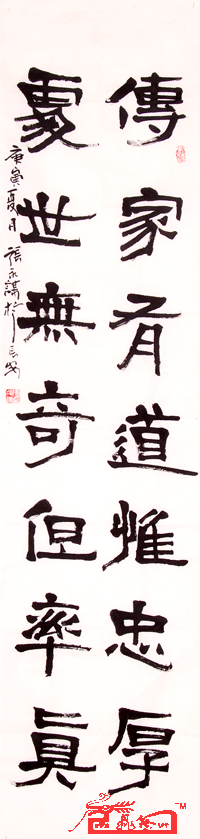 傳家有道惟忠厚
處世無奇但率眞
庚寅夏月 張永 於長安
TM